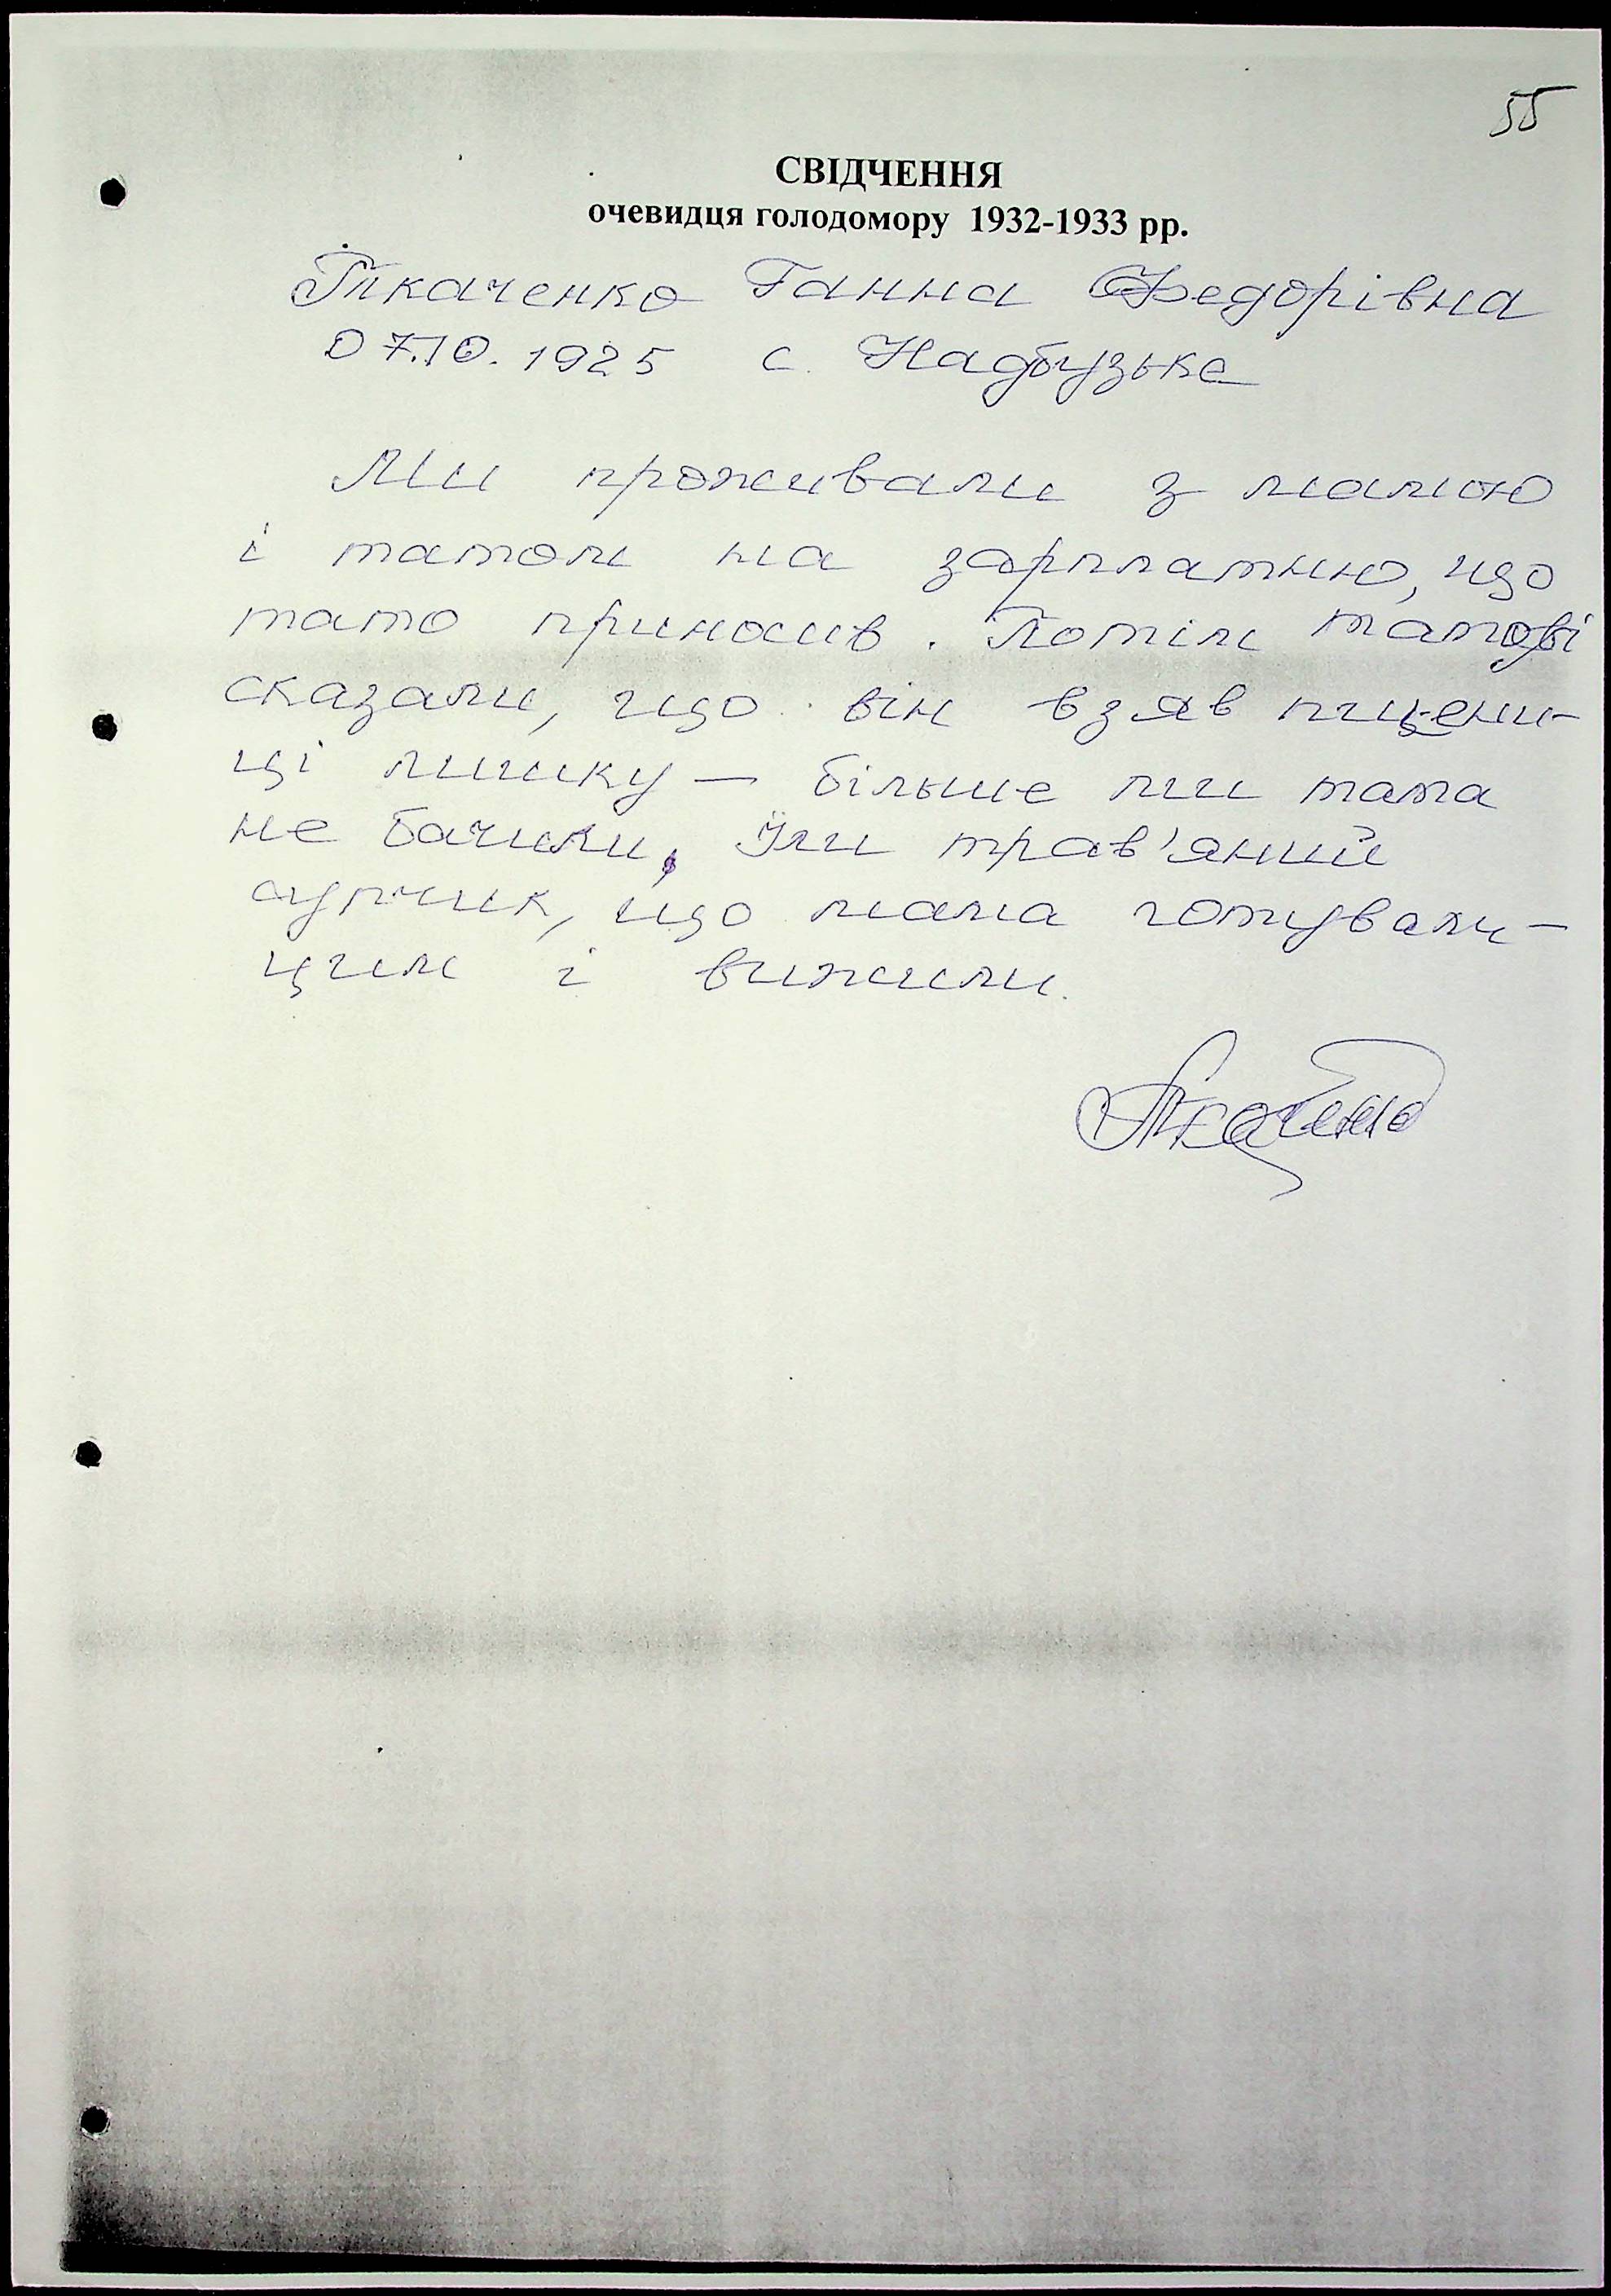 55
СВІДЧЕННЯ
очевидця голодомору 1932-1933 рр.
Ткаченко Ганна Федорівна
07.10.1925 с. Надбузьке
Ми проживали з мамою
і татом на зарплатню, що
тато приносив. Потім татові
сказали, що він взяв пшени-
ці лишку — більше ми тата
не бачили. Їли трав'яний
супчик, що мама готували -
цим і вижили.
Ткаченко